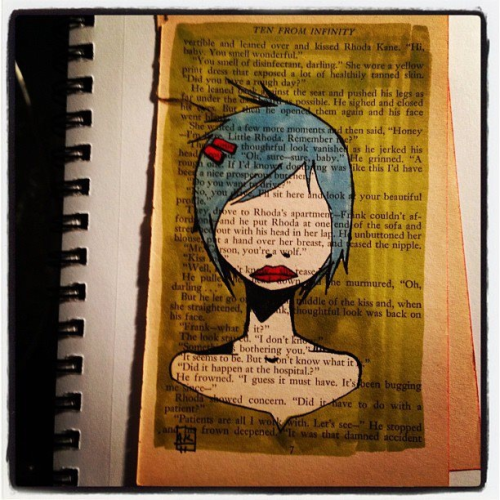 TEN FROM INFINITY
vertible and leaned over and kissed Rhoda Kane. "Hi,
baby. You smell wonderful."
"You smell of disinfectant, darling." She wore a yellow
print dress that exposed a lot of healthily tanned skin.
"Did you have a rough day?"
He leaned back against the seat and pushed his legs as
far under the as possible. He sighed and closed
his eyes. But then he opened them again and his face
went
She waited a few more moments and then said, "Honey
Little Rhoda. Remember me?"
thoughtful look vanished as he jerked his
head "Ok, sure—sure, baby." He grinned. "A
rough one. If I'd known was like this I'd have
been a nice prosperous butcher."
"Do you want to drive?"
"No, you sit here and look at your beautiful
profile."
drove to Rhoda's apartment—Frank couldn't af-
ford and he put Rhoda at one end of the sofa and
stretched out with his head in her lap. He unbuttoned her
blouse, put a hand over her breast, and teased the nipple.
"Mr. person, you're a wolf."
"Kiss
"Well, I teased
He pulled down and she murmured, "Oh,
darling
But he let go middle of the kiss and, when
she straightened, thoughtful look was back on
his face.
"Frank—what it?"
The look stayed. "I don't know
bothering you,
"It seems to be. But I don't know what it
"Did it happen at the hospital?"
He frowned. "I guess it must have. It's been bugging
me since—"
Rhoda showed concern. "Did it have to do with a
patient?"
"Patients are all I work with. Let's see—" He stopped
and frown deepened. "It was that damned accident
7